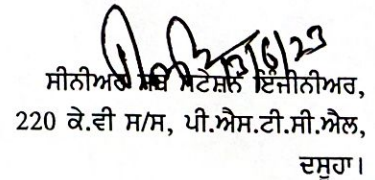 13/6/23
ਸੀਨੀਅਰ ਸਬ ਸਟੇਸ਼ਨ ਇੰਜੀਨੀਅਰ,
220 ਕੇ.ਵੀ ਸ/ਸ, ਪੀ.ਐਸ.ਟੀ.ਸੀ.ਐਲ,
ਦਸੂਹਾ।